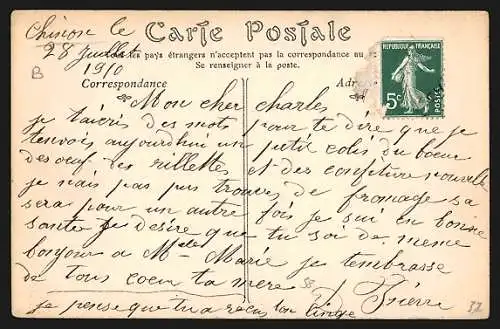 Chinon le
28 Juillet
1910
B
Carte Postale
les pays étrangers n'acceptent pas la correspondance au
Se renseigner à la poste.
Correspondance
Adr
REPUBLIQUE FRANÇAISE
5c
POSTES
Mon cher charles
je técris des mots pour te dire que je
tenvois aujourdhui un petit colis du boeuf
des oeuf des rillettes et des confiture nouvelle
je nais pas pus trouver de fromage sa
sera pour un autre fois je sui en bonne
santé je desire que tu soi de meme
bonjour a Mlle Marie je tembrasse
de tous coeur ta mere
je pense que tu a reçus ton linge